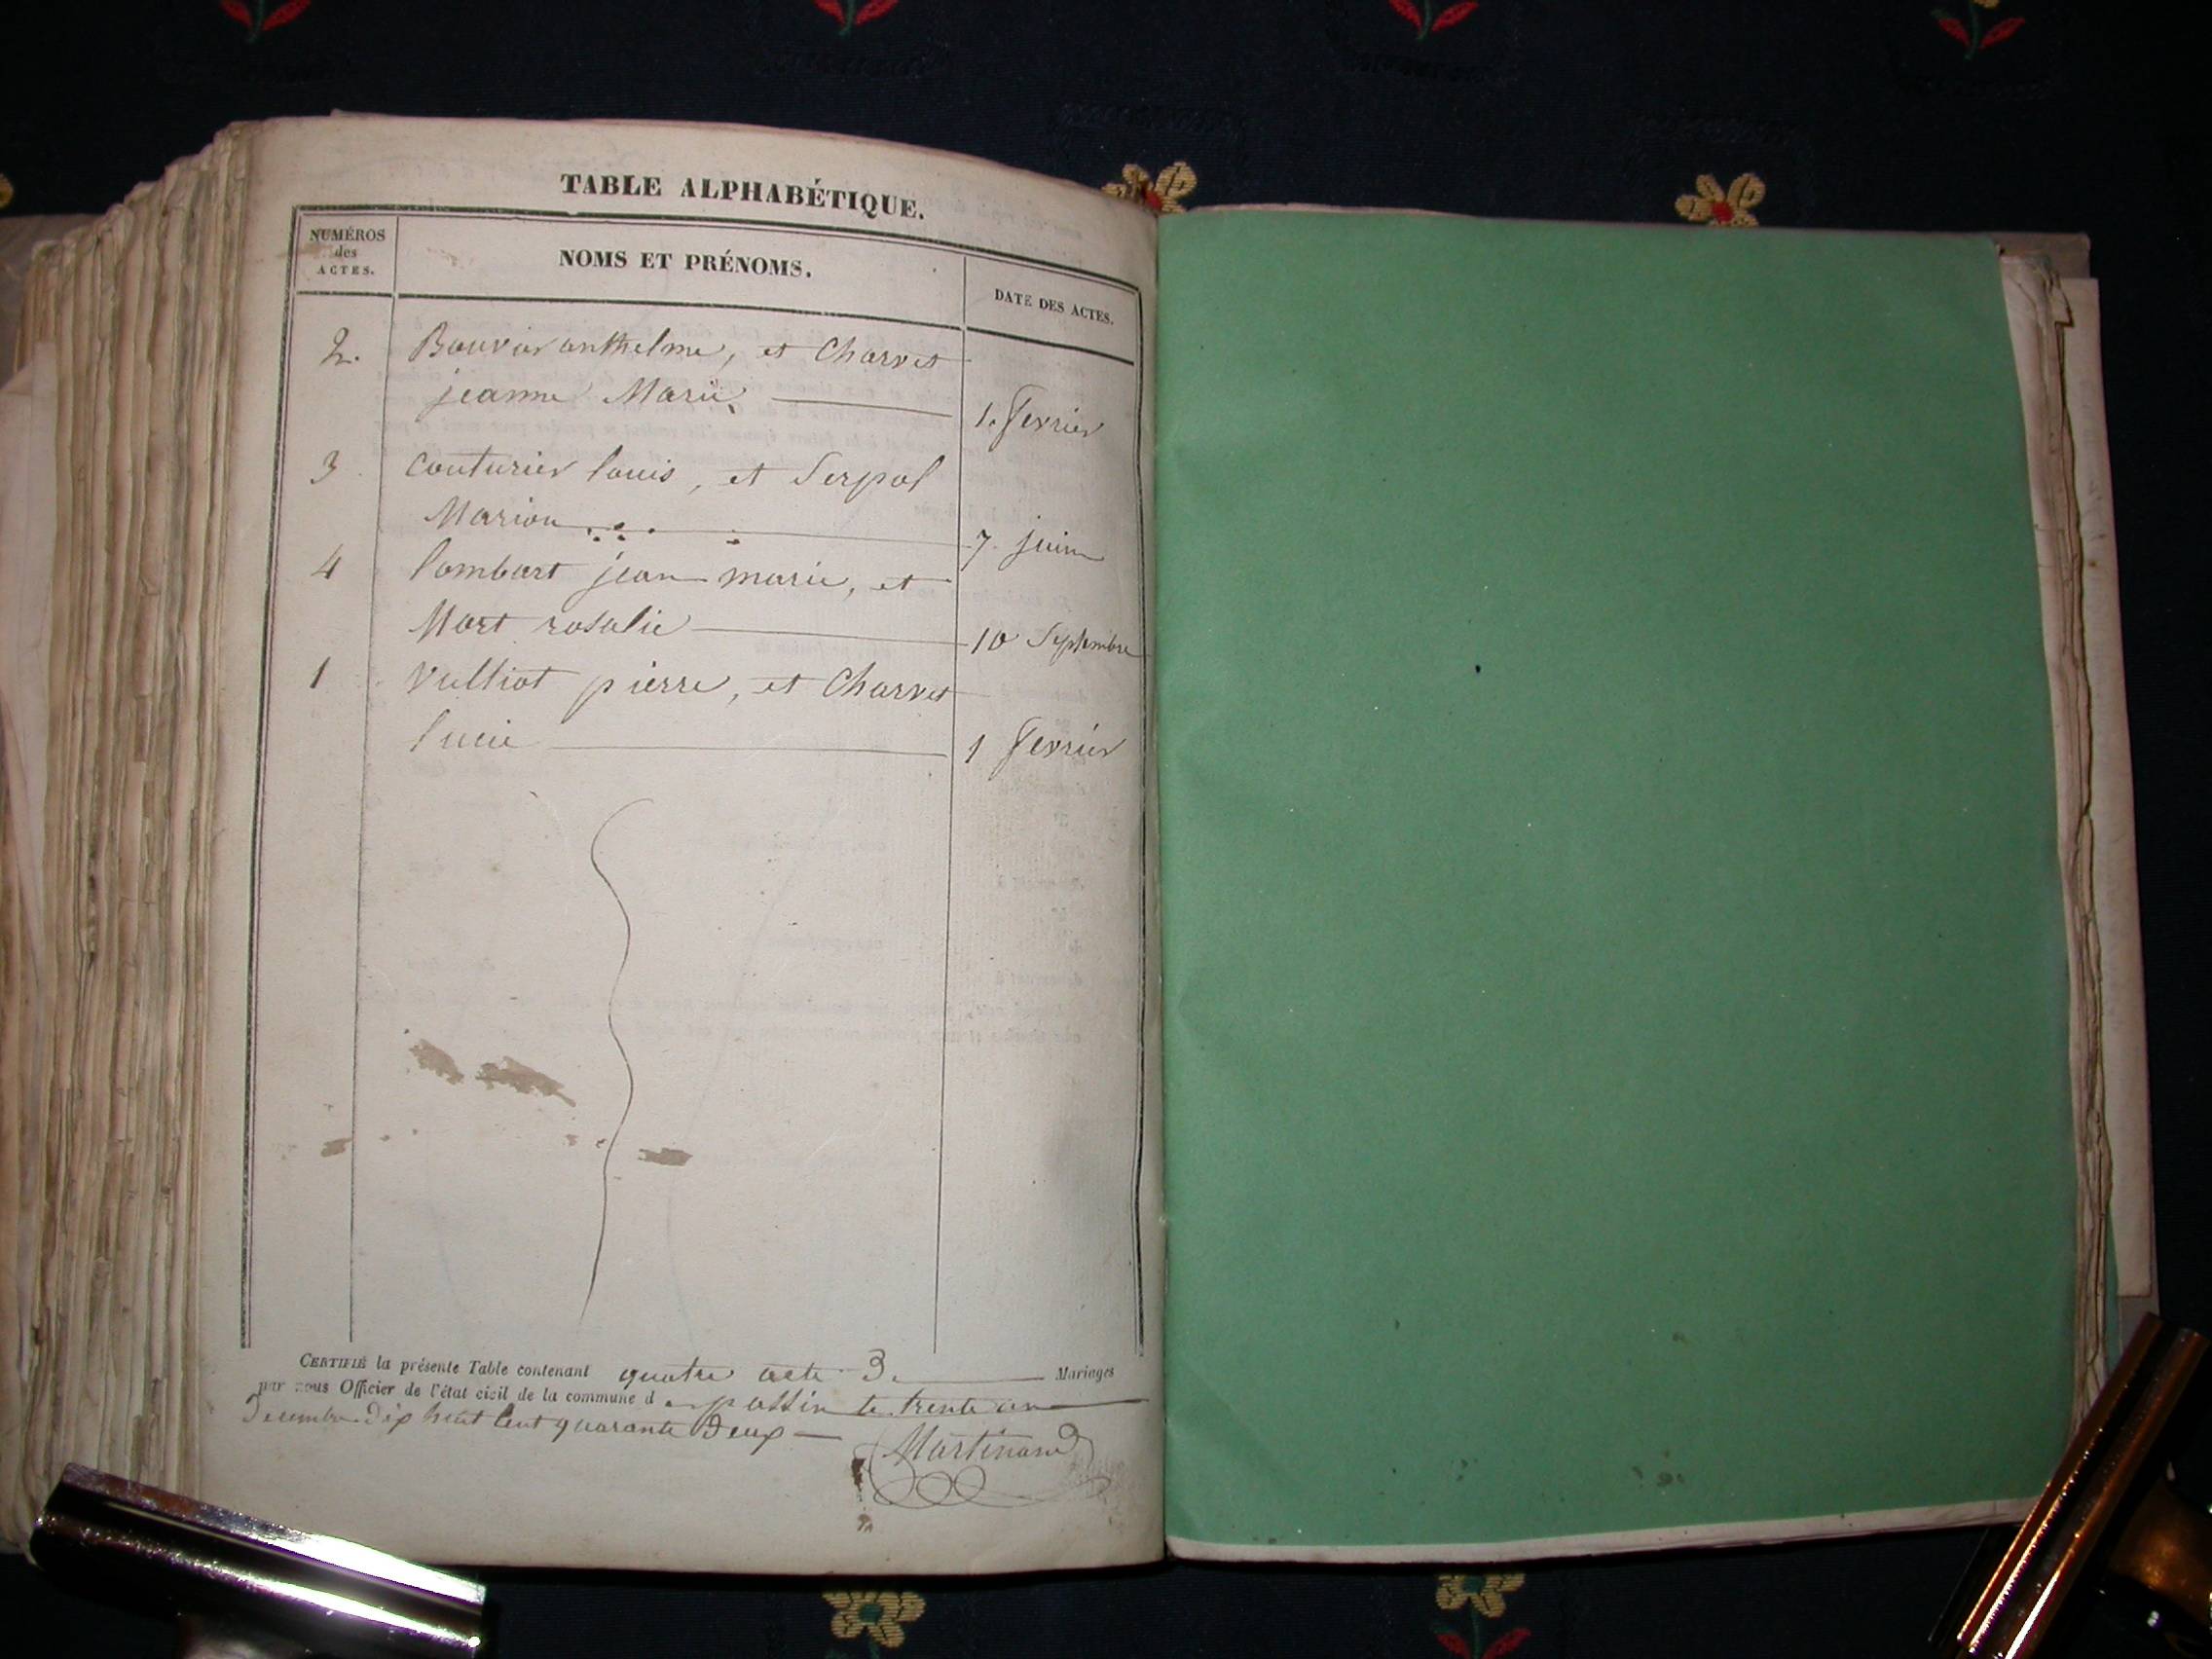 TABLE ALPHABÉTIQUE.
NUMÉROS
des
ACTES.
NOMS ET PRÉNOMS.
DATE DES ACTES.
2. Bouvier anthelme, et Charvet
jeanne Marie 1. fevrier
3 couturier louis, et Serpol
Marion 7. juin
4 lombart jean marie, et
Mort rosalie 10 Septembre
1 Vulliot pierre, et Charvet
lucie 1 fevrier
CERTIFIÉ la présente Table contenant quatre acte Mariages
par nous Officier de l'état civil de la commune d passin le trente un
Decembre dix huit Cent quarante Deux
Martinand